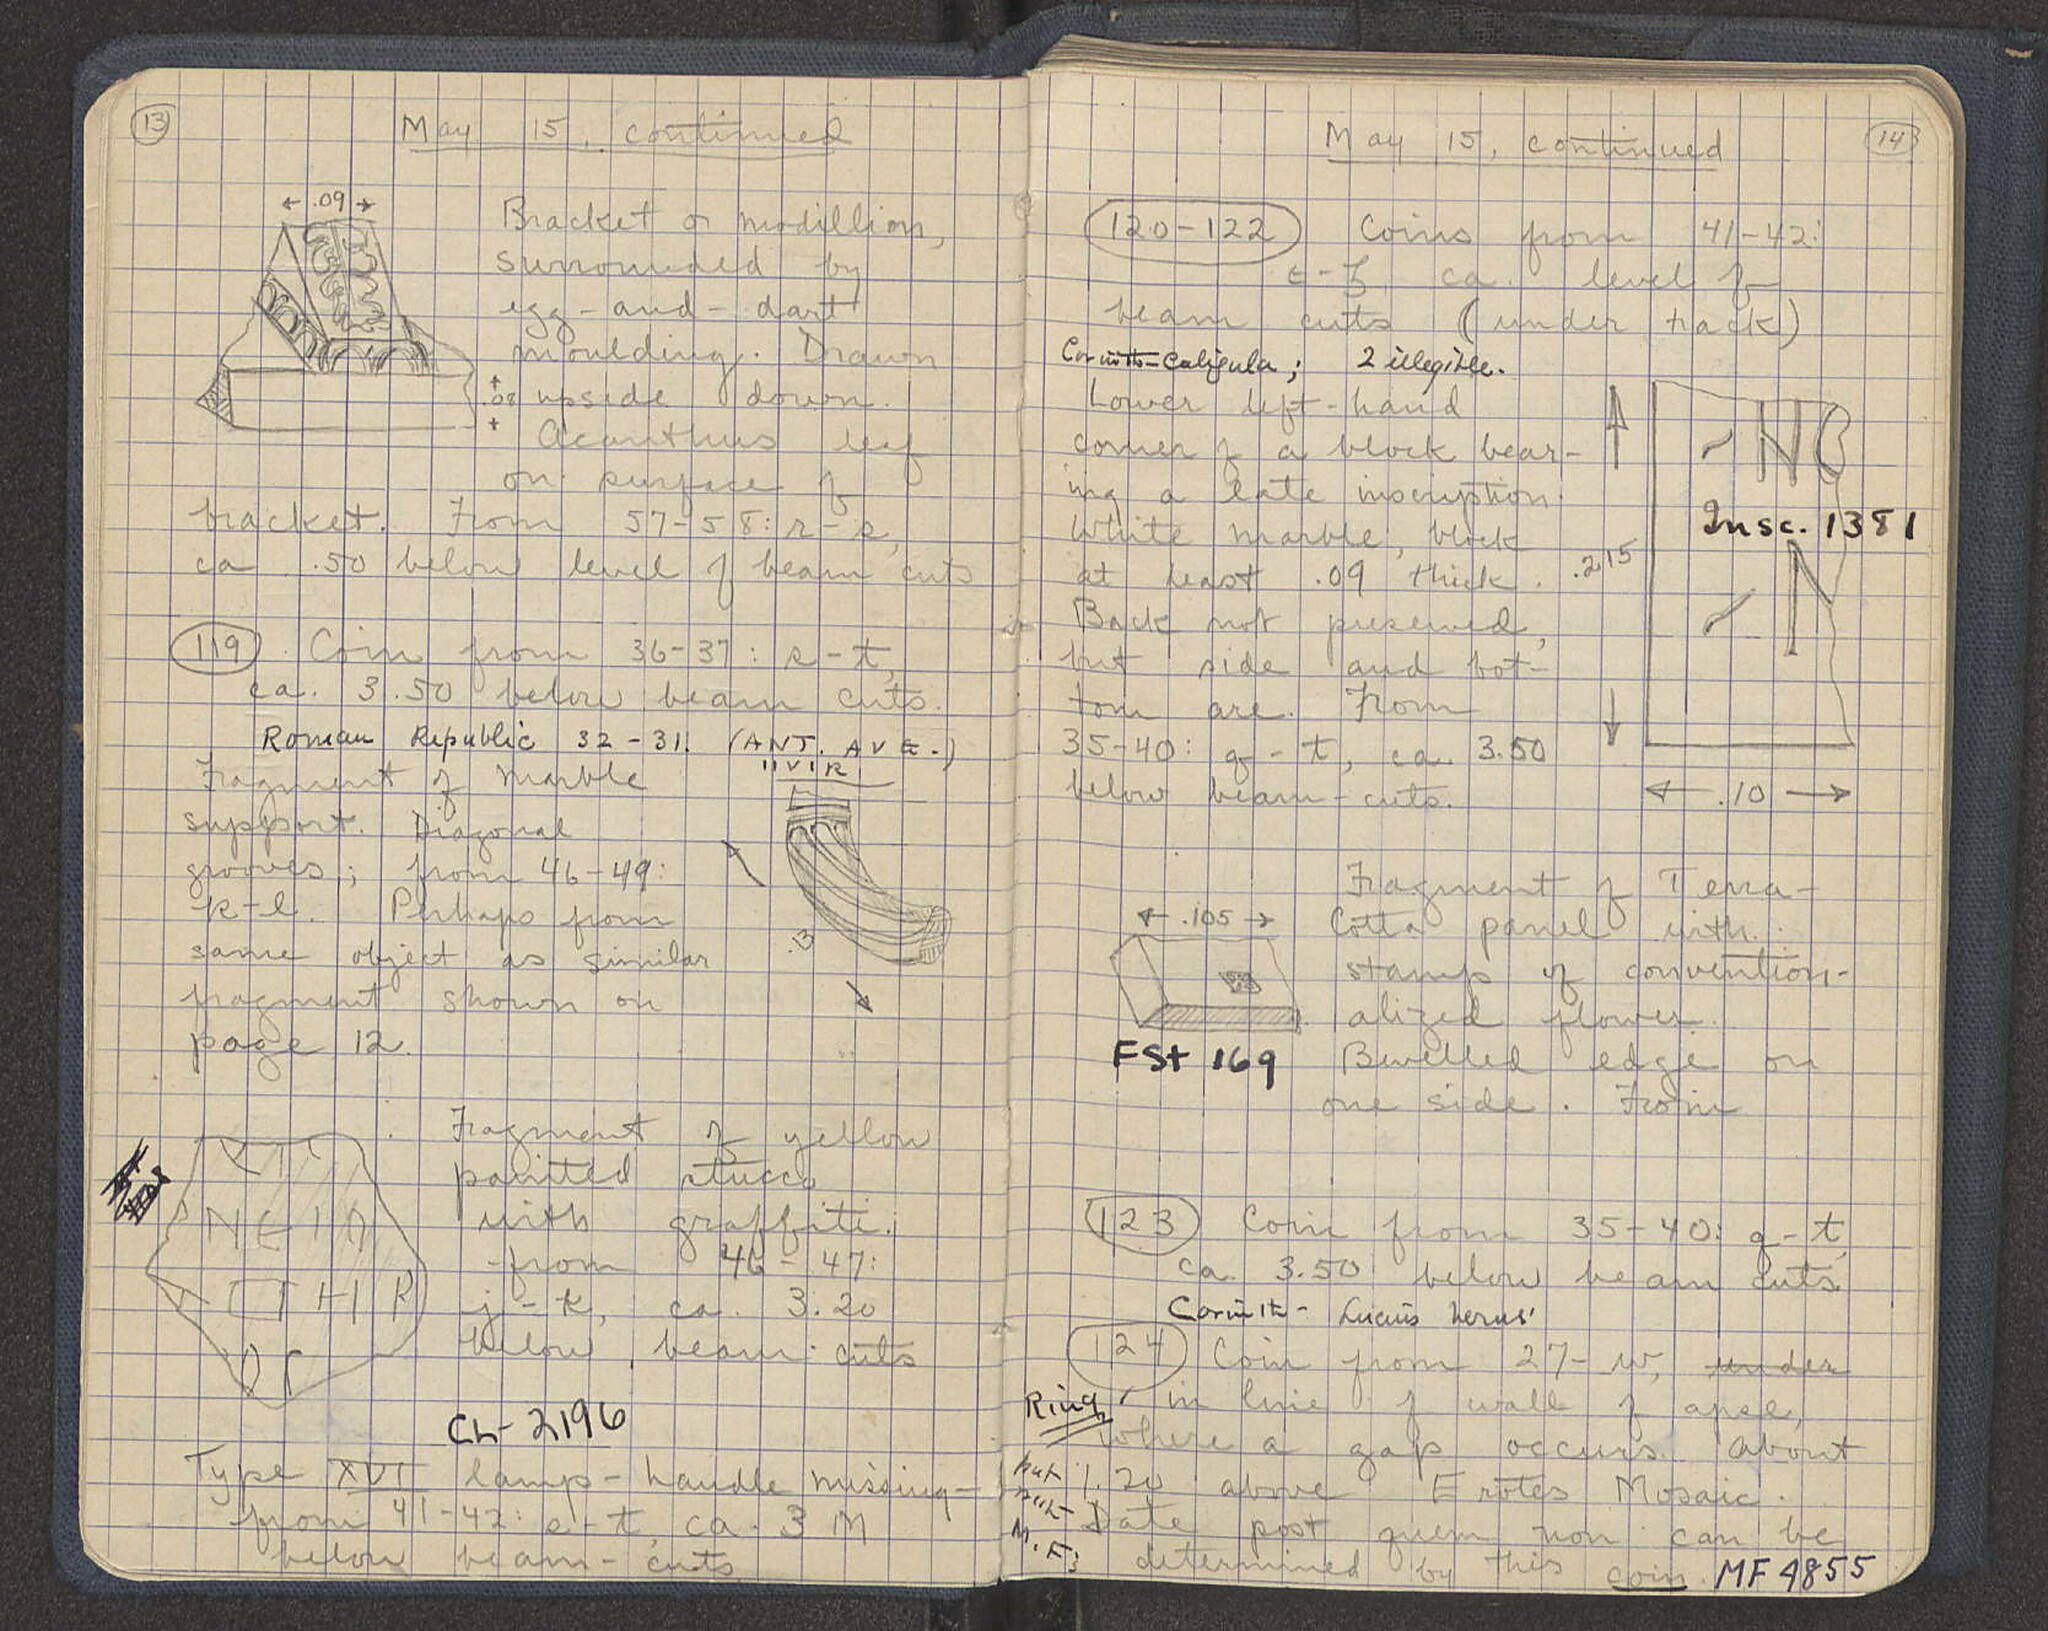 13
May 15, continued
.09
Bracket or modillion,
surrounded by
egg-and-dart
moulding. Drawn
.08 upside down.
Acanthus leaf
on surface of
bracket. From 57-58: r-s,
ca .50 below level of beam cuts
119 Coin from 36-37: s-t,
ca. 3.50 below beam cuts.
Roman Republic 32-31. (ANT. AVG.)
IIVIR
Fragment of marble
support. Diagonal
grooves; from 46-49:
k-l. Perhaps from
same object as similar
fragment shown on
page 12.
.3
Fragment of yellow
painted stucco
with graffiti.
from 46-47:
j-k, ca. 3.20
below beam cuts
CL-2196
Type XVI lamp-handle missing-
from 41-42: s-t, ca. 3 M
below beam-cuts
14
May 15, continued
120-122 Coins from 41-42:
ca. level of
beam cuts (under track)
Corinth-Caligula; 2 illegible.
Lower left-hand
corner of a block bear-
ing a late inscription.
White marble, block
at least .09 thick.
Back not preserved,
but side and bot-
tom are. From
35-40: q-t, ca. 3.50
below beam-cuts.
-NO
Insc. 1381
.215
-N
.10
Fragment of Terra-
Cotta panel with
stamp of convention-
alized flower.
Bevelled edge on
one side. From
.105
FSt 169
123 Coin from 35-40: q-t,
ca. 3.50 below beam cuts.
Corinth - Lucius Verus
124 Coin from 27-w, under
in line of wall of apse,
where a gap occurs. About
1.20 above Erotes Mosaic.
Date post quem non can be
determined by this coin. MF 4855
Ring